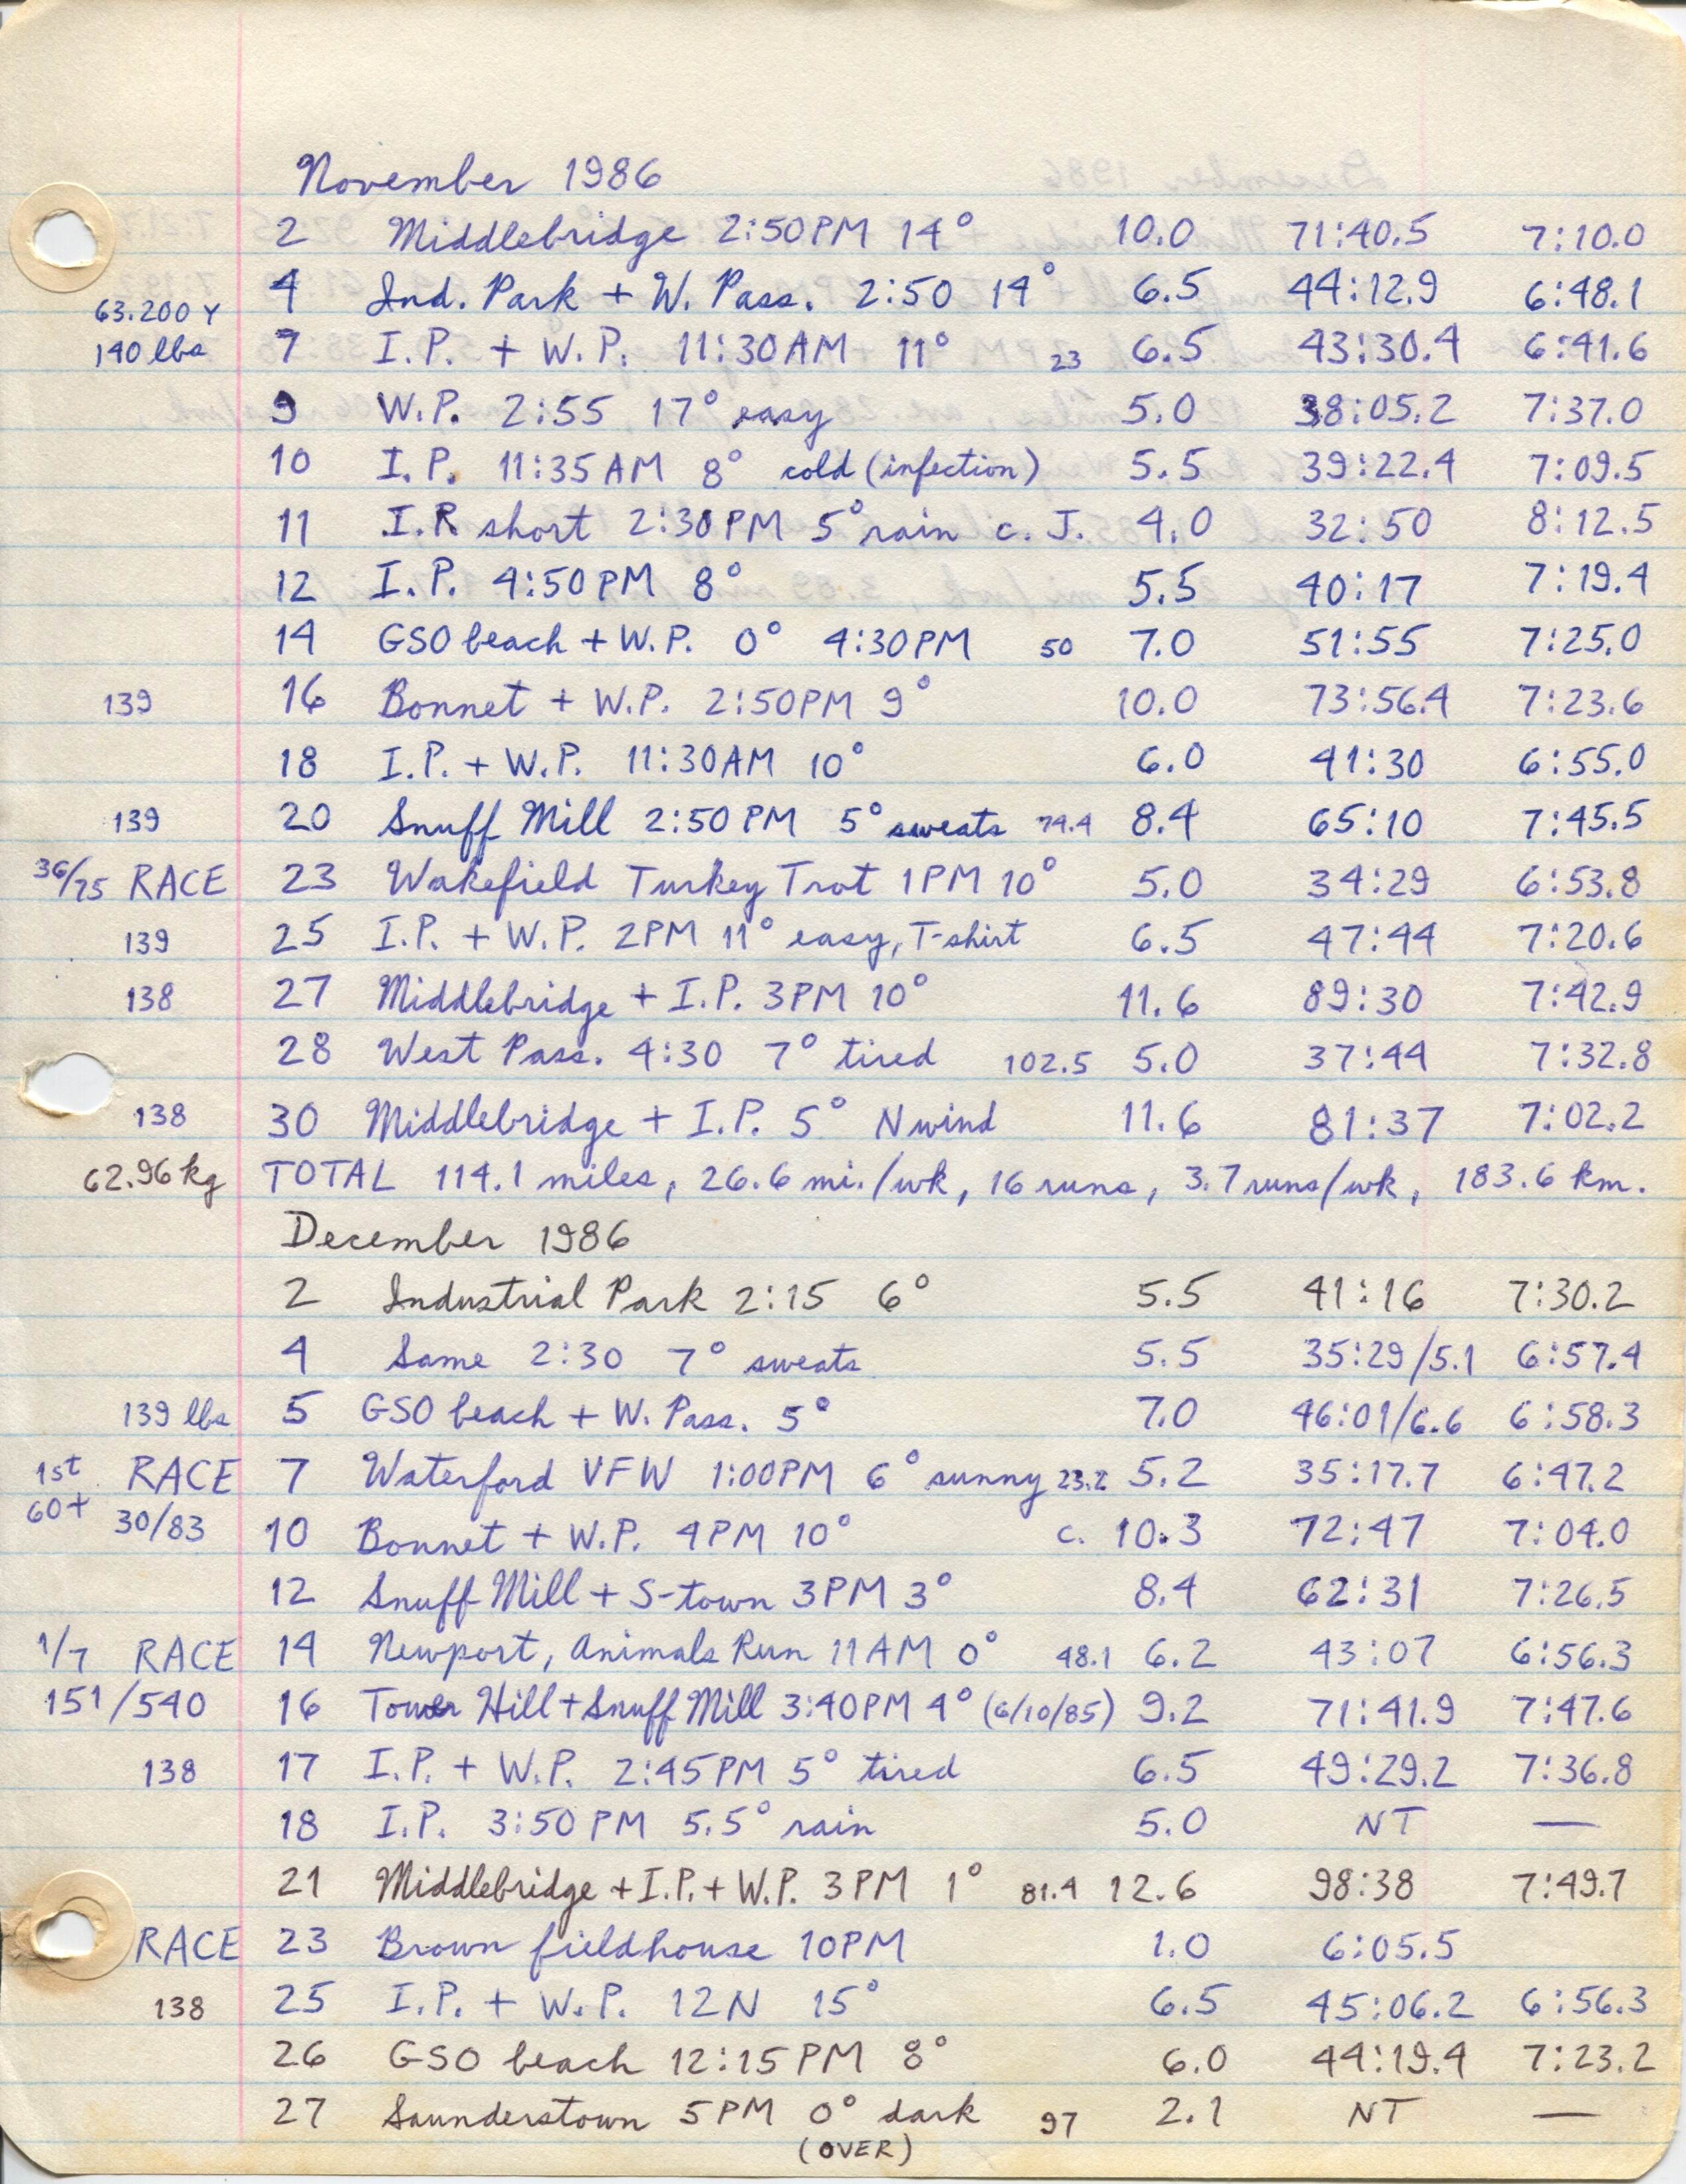 November 1986
2 Middlebridge 2:50PM 14° 10.0 71:40.5 7:10.0
63.200 Y 4 Ind. Park + W. Pass. 2:50 14° 6.5 44:12.9 6:48.1
140 lbs 7 I.P. + W.P. 11:30AM 11° 23 6.5 43:30.4 6:41.6
9 W.P. 2:55 17° easy 5.0 38:05.2 7:37.0
10 I.P. 11:35AM 8° cold (infection) 5.5 39:22.4 7:09.5
11 I.P. short 2:30PM 5° rain c. J. 4.0 32:50 8:12.5
12 I.P. 4:50PM 8° 5.5 40:17 7:19.4
14 GSO beach + W.P. 0° 4:30PM 50 7.0 51:55 7:25.0
139 16 Bonnet + W.P. 2:50PM 9° 10.0 73:56.4 7:23.6
18 I.P. + W.P. 11:30AM 10° 6.0 41:30 6:55.0
139 20 Snuff Mill 2:50 PM 5° sweats 74.4 8.4 65:10 7:45.5
36/75 RACE 23 Wakefield Turkey Trot 1PM 10° 5.0 34:29 6:53.8
139 25 I.P. + W.P. 2PM 11° easy, T-shirt 6.5 47:44 7:20.6
138 27 Middlebridge + I.P. 3PM 10° 11.6 89:30 7:42.9
28 West Pass. 4:30 7° tired 102.5 5.0 37:44 7:32.8
138 30 Middlebridge + I.P. 5° N wind 11.6 81:37 7:02.2
62.96 kg TOTAL 114.1 miles, 26.6 mi./wk, 16 runs, 3.7 runs/wk, 183.6 km.
December 1986
2 Industrial Park 2:15 6° 5.5 41:16 7:30.2
4 Same 2:30 7° sweats 5.5 35:29/5.1 6:57.4
139 lbs 5 GSO beach + W. Pass. 5° 7.0 46:01/6.6 6:58.3
1st RACE 7 Waterford VFW 1:00PM 6° sunny 23.2 5.2 35:17.7 6:47.2
60+ 30/83 10 Bonnet + W.P. 4PM 10° c. 10.3 72:47 7:04.0
12 Snuff Mill + S-town 3PM 3° 8.4 62:31 7:26.5
1/7 RACE 14 Newport, Animals Run 11AM 0° 48.1 6.2 43:07 6:56.3
151/540 16 Tower Hill + Snuff Mill 3:40PM 4° (6/10/85) 9.2 71:41.9 7:47.6
138 17 I.P. + W.P. 2:45PM 5° tired 6.5 49:29.2 7:36.8
18 I.P. 3:50 PM 5.5° rain 5.0 NT —
21 Middlebridge + I.P. + W.P. 3PM 1° 81.4 12.6 98:38 7:49.7
RACE 23 Brown fieldhouse 10PM 1.0 6:05.5
138 25 I.P. + W.P. 12N 15° 6.5 45:06.2 6:56.3
26 GSO beach 12:15 PM 8° 6.0 44:19.4 7:23.2
27 Saunderstown 5PM 0° dark 97 2.1 NT —
(OVER)